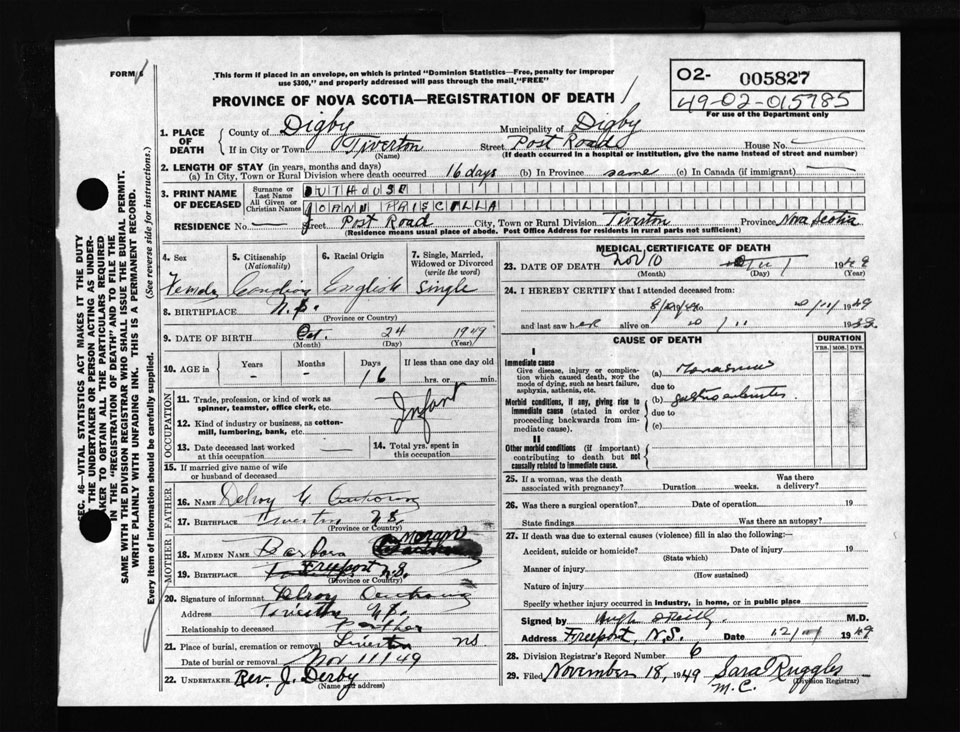 FORM
This form if placed in an envelope, on which is printed "Dominion Statistics—Free, penalty for improper
use $300," and properly addressed will pass through the mail "FREE"
PROVINCE OF NOVA SCOTIA—REGISTRATION OF DEATH
O2- 005827
49-02-015785
For use of the Department only
1. PLACE OF DEATH
County of Digby Municipality of Digby
If in City or Town Tiverton Street Post Road House No.
(Name) (If death occurred in a hospital or institution, give the name instead of street and number)
2. LENGTH OF STAY (in years, months and days)
(a) In City, Town or Rural Division where death occurred 16 days (b) In Province same (c) In Canada (if immigrant)
3. PRINT NAME OF DECEASED
Surname or Last Name OUTHOUSE
All Given or Christian Names JOANN PRISCILLA
RESIDENCE No. Street Post Road City, Town or Rural Division Tiverton Province Nova Scotia
(Residence means usual place of abode. Post Office Address for residents in rural parts not sufficient)
4. Sex
5. Citizenship (Nationality)
6. Racial Origin
7. Single, Married, Widowed or Divorced (write the word)
Female Canadian English Single
8. BIRTHPLACE N.S.
(Province or Country)
9. DATE OF BIRTH Oct. 24 1949
(Month) (Day) (Year)
10. AGE in Years Months Days If less than one day old
- - 16 hrs. or min.
OCCUPATION
11. Trade, profession, or kind of work as spinner, teamster, office clerk, etc.
Infant
12. Kind of industry or business, as cotton-mill, lumbering, bank, etc.
13. Date deceased last worked at this occupation
14. Total yrs. spent in this occupation
15. If married give name of wife or husband of deceased
FATHER
16. NAME Delroy
17. BIRTHPLACE Tiverton N.S.
(Province or Country)
MOTHER
18. MAIDEN NAME Barbara
19. BIRTHPLACE Freeport N.S.
(Province or Country)
20. Signature of informant Delroy
Address Tiverton N.S.
Relationship to deceased Father
21. Place of burial, cremation or removal Tiverton NS
Date of burial or removal Nov 11/49
22. UNDERTAKER Rev. J. Derby
(Name and address)
MEDICAL CERTIFICATE OF DEATH
23. DATE OF DEATH Nov 10 1949
(Month) (Day) (Year)
24. I HEREBY CERTIFY that I attended deceased from:
to 1949
and last saw her alive on 19
CAUSE OF DEATH
DURATION
YRS. MOS. DYS.
I
Immediate cause
Give disease, injury or complication which caused death, NOT the mode of dying, such as heart failure, asphyxia, asthenia, etc.
(a)
due to
Morbid conditions, if any, giving rise to immediate cause (stated in order proceeding backwards from immediate cause).
(b)
due to
(c)
II
Other morbid conditions (if important) contributing to death but not causally related to immediate cause.
25. If a woman, was the death associated with pregnancy? Duration weeks. Was there a delivery?
26. Was there a surgical operation? Date of operation 19
State findings Was there an autopsy?
27. If death was due to external causes (violence) fill in also the following:
Accident, suicide or homicide? Date of injury 19
(State which)
Manner of injury
(How sustained)
Nature of injury
Specify whether injury occurred in industry, in home, or in public place
Signed by M.D.
Address Freeport N.S. Date 1949
28. Division Registrar's Record Number 6
29. Filed November 18, 1949 Sara Ruggles
M.C. (Division Registrar)
SEC. 46—VITAL STATISTICS ACT MAKES IT THE DUTY
OF THE UNDERTAKER OR PERSON ACTING AS UNDER-
TAKER TO OBTAIN ALL THE PARTICULARS REQUIRED
IN THE "REGISTRATION OF DEATH" AND TO FILE THE
SAME WITH THE DIVISION REGISTRAR WHO SHALL ISSUE THE BURIAL PERMIT.
WRITE PLAINLY WITH UNFADING INK. THIS IS A PERMANENT RECORD.
Every item of information should be carefully supplied. (See reverse side for instructions.)